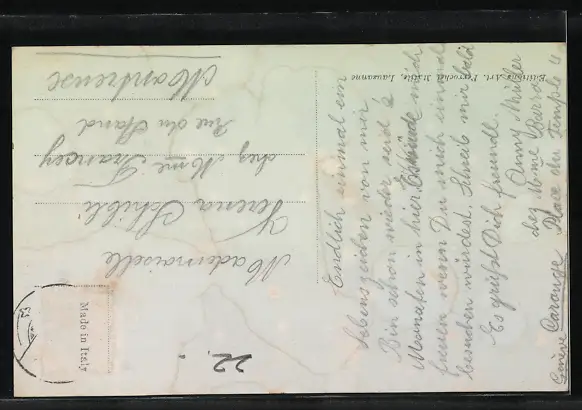 Endlich einmal ein
Lebenszeichen von mir
Bin schon wieder seid 2
Monaten in hier. Es würde mich
freuen wenn Du mich einmal
besuchen würdest. Schreib mir bald
Es grüßt Dich freundl.
Anny Müller
chez Mme
Place du Temple 4
Genève Carouge
Editions Art. Perrochet Matile, Lausanne
Made in Italy
Mademoiselle
Verena Schibli
chez Mme Francey
Rue du Stand
Montreux
22.